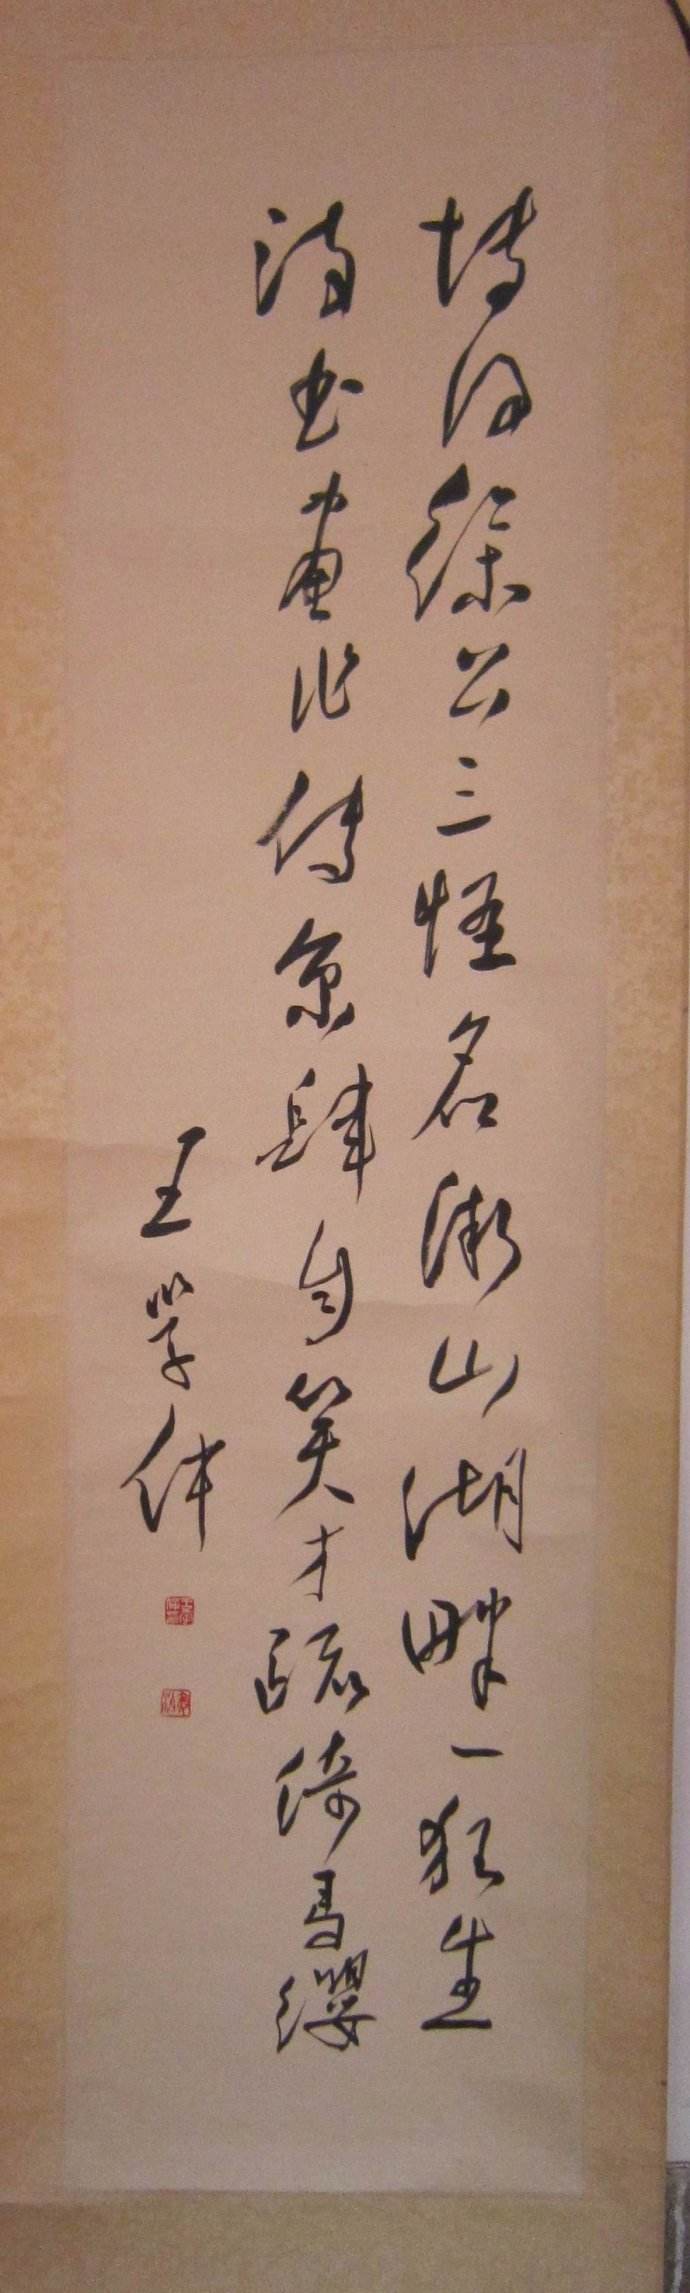 博得徐公三怪名微山湖畔一狂生
诗书画作传京肆自笑才疏倚马缨
王学仲